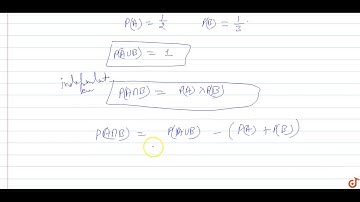 P(A) = 1/2 P(B) = 1/3
P(A∪B) = 1
independent
P(A∩B) = P(A) × P(B)
P(A∩B) = P(A∪B) - (P(A) + P(B))